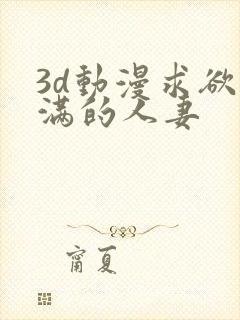 3d動漫求欲
满的人妻
甯夏